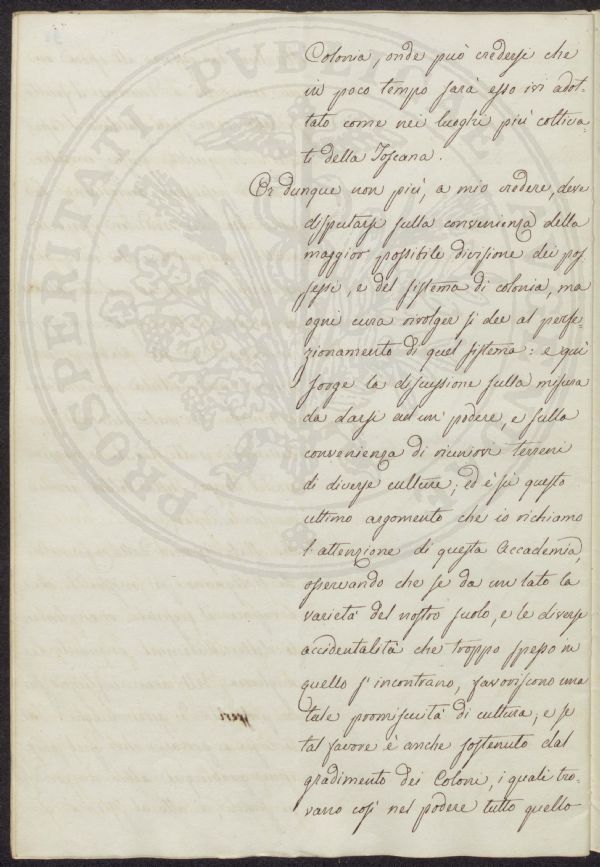 Colonia, onde può credersi che
in poco tempo sarà esso ivi adot-
tato come nei luoghi più coltiva-
ti della Toscana.
Or dunque non più, a mio credere, deve
disputarsi sulla convenienza della
maggior possibile divisione dei pos
sessi, e del sistema di colonia, ma
ogni cura rivolger si dee al perfe-
zionamento di quel sistema: e quì
sorge la discussione sulla misura
da darsi ad un' podere, e sulla
convenienza di riunirvi terreni
di diverse culture; ed è su questo
ultimo argomento che io richiamo
l'attenzione di questa Accademia,
osservando che se da un lato la
varietà del nostro suolo, e le diverse
accidentalità che troppo spesso in
quello s'incontrano, favoriscono una
tale promiscuità di cultura, e se
tal favore è anche sostenuto dal
gradimento dei Coloni, i quali tro-
vano così nel podere tutto quello
PROSPERITATI PVBLICAE